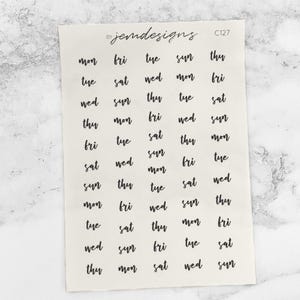 jemdesigns C127
mon fri tue sun thu
tue sat wed mon fri
wed sun thu tue sat
thu mon fri wed sun
fri tue sat thu mon
sat wed sun fri tue
sun thu mon sat wed
mon fri tue sun thu
tue sat wed mon fri
wed sun thu tue sat
thu mon fri wed sun
sat